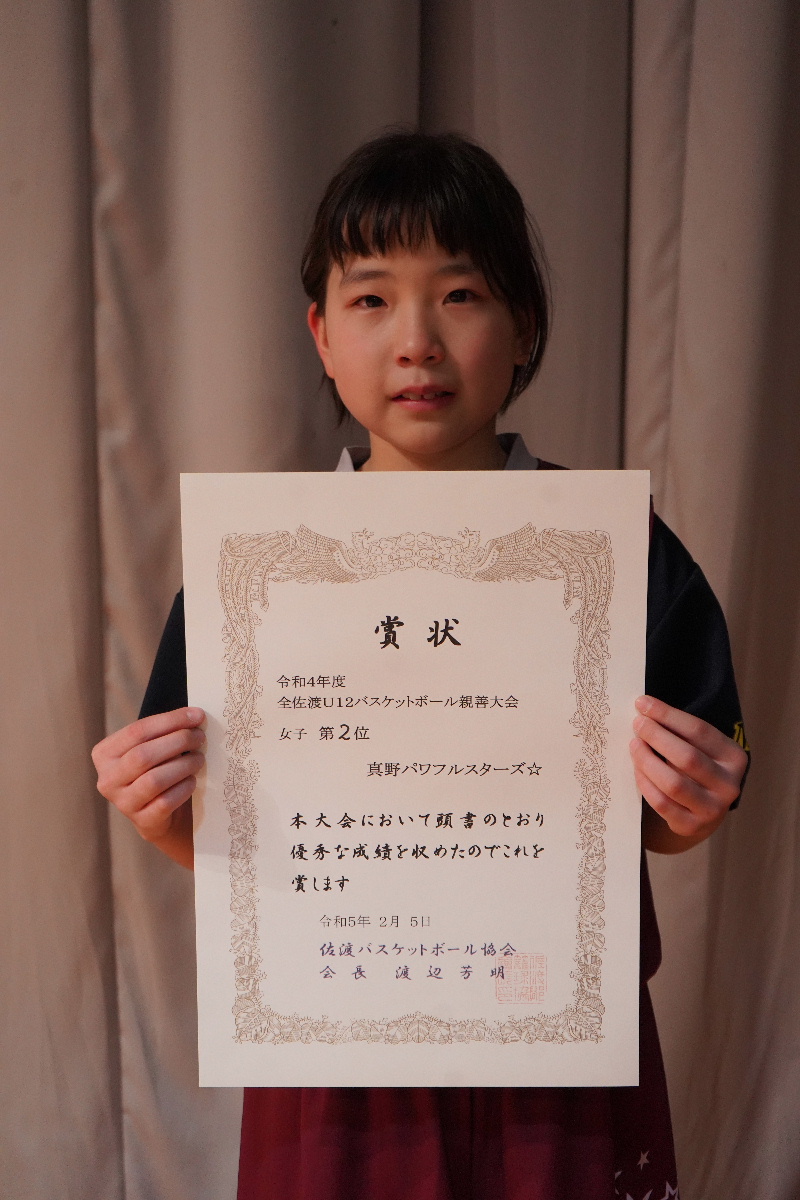 賞状
令和4年度
全佐渡U12バスケットボール親善大会
女子 第2位
真野パワフルスターズ☆
本大会において頭書のとおり
優秀な成績を収めたのでこれを
賞します
令和5年 2月 5日
佐渡バスケットボール協会
会長 渡辺芳明